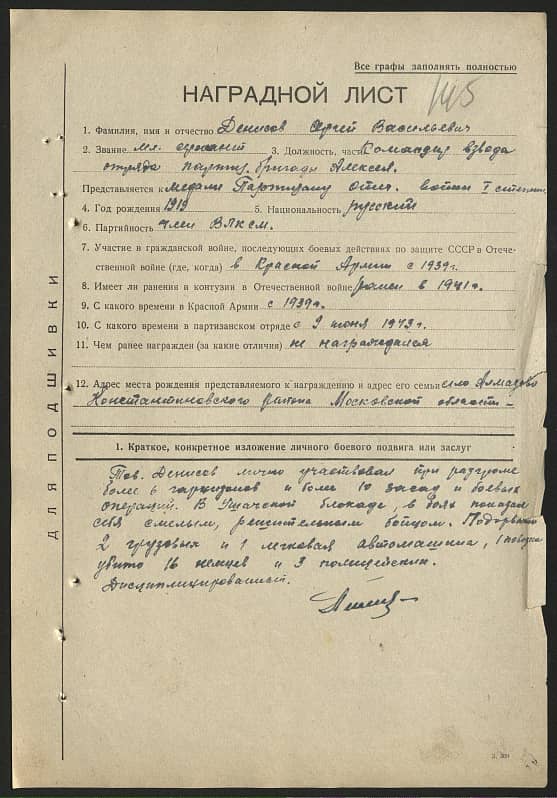 Все графы заполнять полностью
НАГРАДНОЙ ЛИСТ
145
1. Фамилия, имя и отчество Денисов Сергей Васильевич
2. Звание мл. сержант 3. Должность, часть Командир взвода
отряда партиз. бригады Алексея.
Представляется к медали Партизану отеч. войны I степени
4. Год рождения 1919 5. Национальность русский
6. Партийность член ВЛКСМ.
7. Участие в гражданской войне, последующих боевых действиях по защите СССР в Отече-
ственной войне (где, когда) в Красной Армии с 1939г.
8. Имеет ли ранения и контузии в Отечественной войне ранен в 1941г.
9. С какого времени в Красной Армии с 1939г.
10. С какого времени в партизанском отряде с 9 июня 1943г.
11. Чем ранее награжден (за какие отличия) не награждался
12. Адрес места рождения представляемого к награждению и адрес его семьи село Алмазово
Константиновского района Московской области -
1. Краткое, конкретное изложение личного боевого подвига или заслуг
Тов. Денисов лично участвовал при разгроме
более 6 гарнизонов и более 10 засад и боевых
операций. В Ушачской блокаде, в боях показал
себя смелым, решительным бойцом. Подорвано
2 грузовых и 1 легковая автомашина, 1 повозка
убито 16 немцев и 3 полицейских.
Дисциплинирован.
ДЛЯ ПОДШИВКИ